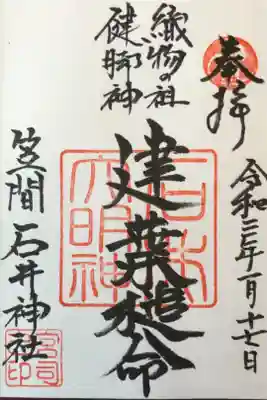 奉拝
令和三年一月十七日
織物の祖
健脚神
建葉槌命
大明神
笠間 石井神社